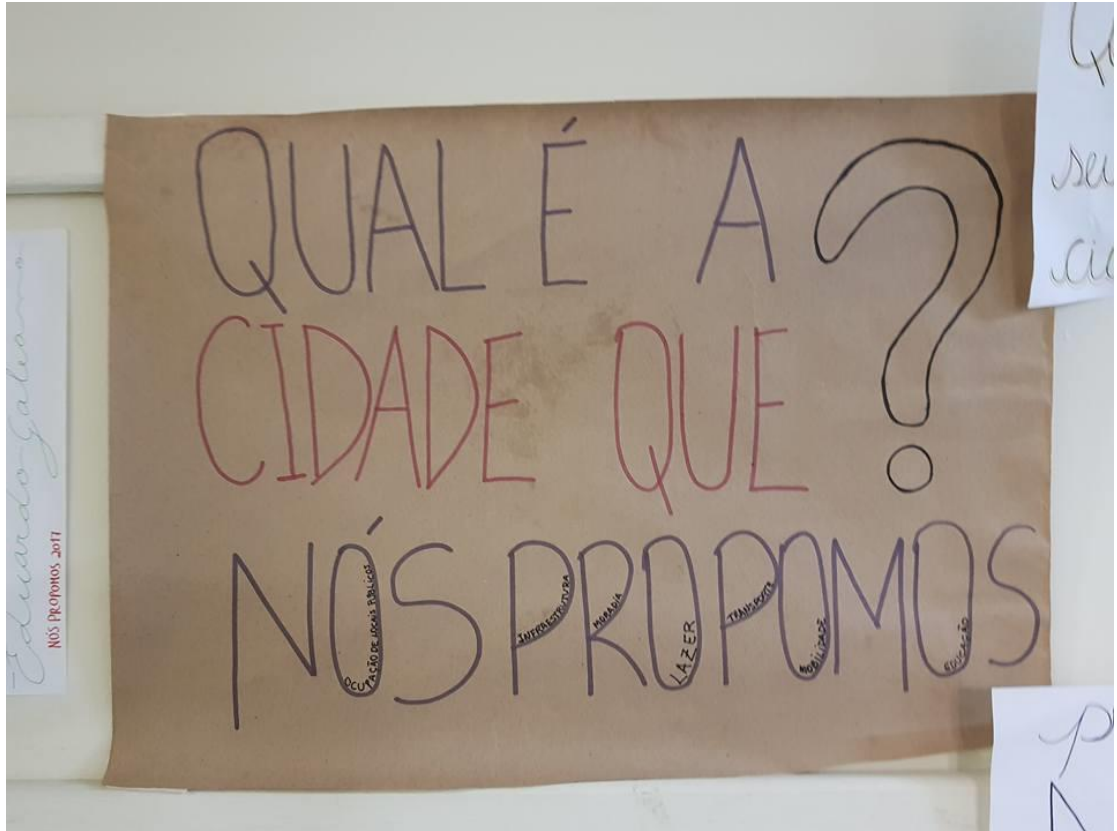 QUAL É A ?
CIDADE QUE
NÓS PROPOMOS
OCUPAÇÃO DE LOCAIS PÚBLICOS
INFRAESTRUTURA
MORADIA
LAZER
TRANSPORTE
MOBILIDADE
EDUCAÇÃO
-Eduardo Galeano
NÓS PROPOMOS 2017